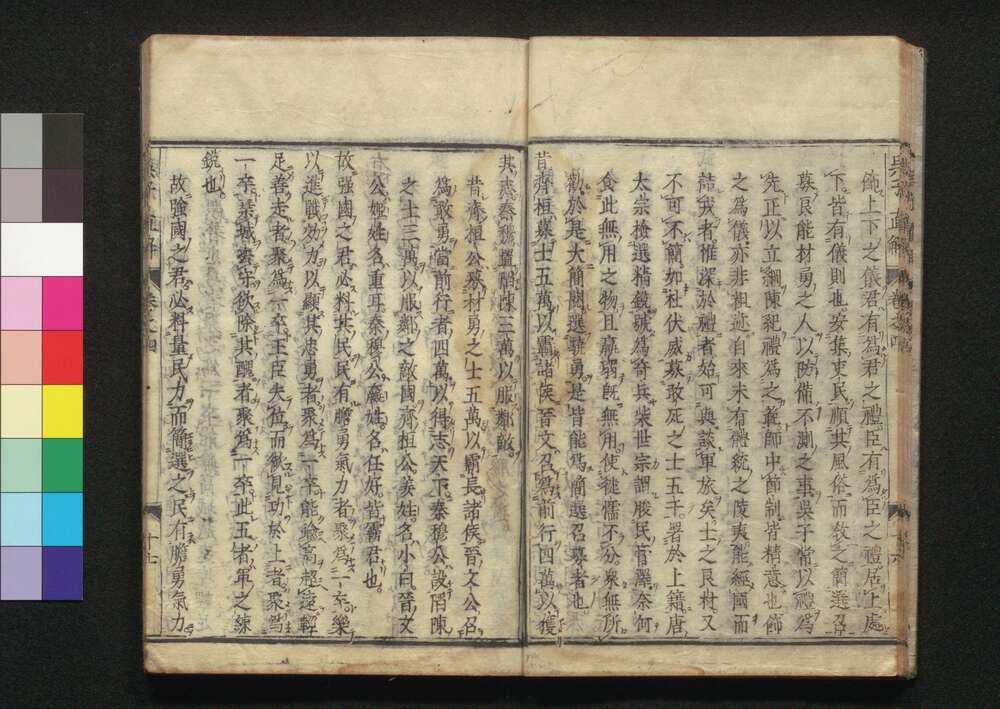 飾上下之儀君有爲君之禮臣有爲臣之禮居上處
下皆有儀則也安集吏民順其風俗而敎之簡選召
募良能材勇之人以防備不測之事吳子常以禮爲
先正以立綱陳紀禮爲之範師中節制皆精意也飾
之爲儀亦非粗迹自來未有體統之陵夷能經國而
詰我者惟深於禮者始可與談軍旅矣士之良材又
不可不簡如社伏威募敢死之士五千署於上籍唐
太宗檢選精銳號爲奇兵柴世宗謂朘民膏澤奈何
食此無用之物且羸弱既無用使徤懦不分衆無所
勸於是大簡閱選驍勇是皆能爲簡選召募者也
昔齊桓募士五萬以霸諸侯晉文召爲前行四萬以獲
其志秦穆置陷陳三萬以服鄰敵
昔齊桓公募材勇之士五萬以霸長諸侯晉文公召
爲敢勇當前行者四萬以得志天下秦穆公設陷陳
之士三萬以服鄰之敵國齊桓公姜姓名小白晉文
公姬姓名重耳秦穆公嬴姓名任好皆霸君也
故強國之君必料其民民有膽勇氣力者聚爲一卒樂
以進戰效力以顯其忠勇者聚爲一卒能踰高超遠輕
足善走者聚爲一卒王臣失位而欲見功於上者聚爲
一卒棄城去守欲除其醜者聚爲一卒此五者軍之練
銳也
故強國之君必料量民力而簡選之民有膽勇氣力
吳子直解
卷之四
十七